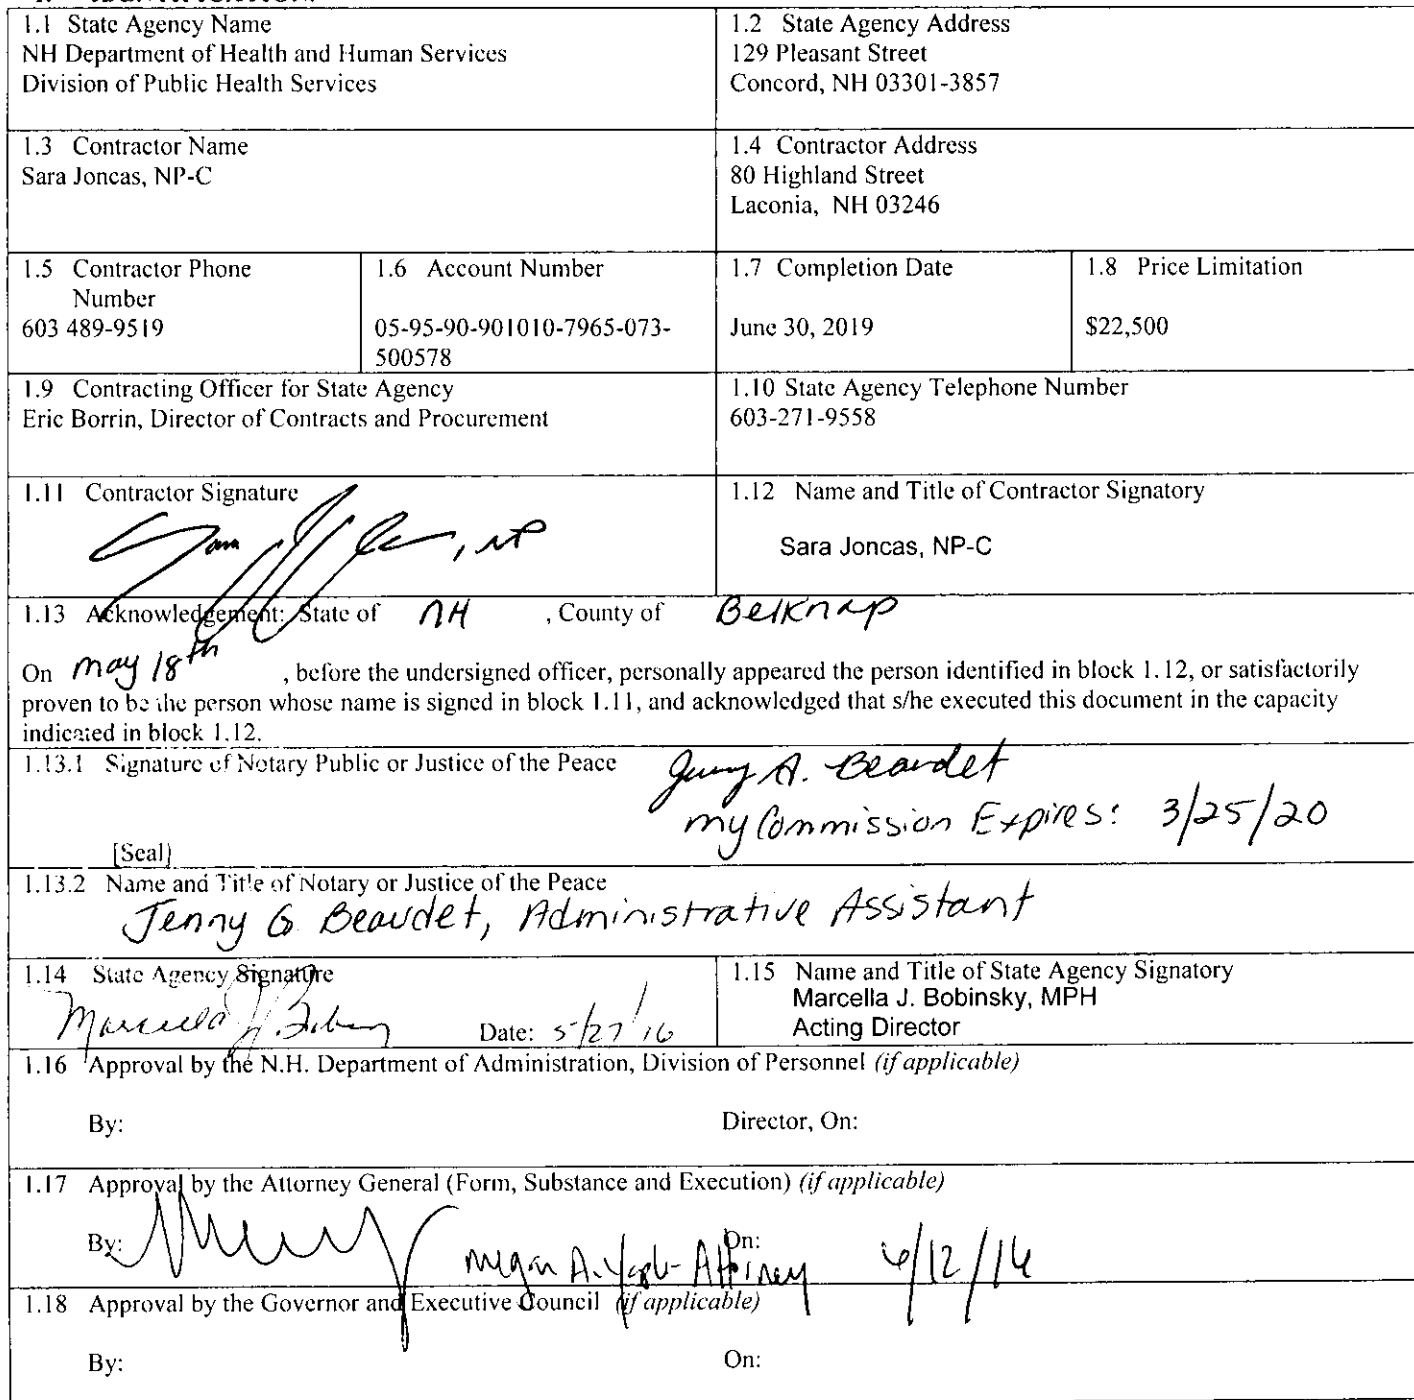 1.1 State Agency Name
NH Department of Health and Human Services
Division of Public Health Services
1.2 State Agency Address
129 Pleasant Street
Concord, NH 03301-3857
1.3 Contractor Name
Sara Joncas, NP-C
1.4 Contractor Address
80 Highland Street
Laconia, NH 03246
1.5 Contractor Phone
Number
603 489-9519
1.6 Account Number
05-95-90-901010-7965-073-
500578
1.7 Completion Date
June 30, 2019
1.8 Price Limitation
$22,500
1.9 Contracting Officer for State Agency
Eric Borrin, Director of Contracts and Procurement
1.10 State Agency Telephone Number
603-271-9558
1.11 Contractor Signature
, NP
1.12 Name and Title of Contractor Signatory
Sara Joncas, NP-C
1.13 Acknowledgement: State of NH , County of Belknap
On may 18th , before the undersigned officer, personally appeared the person identified in block 1.12, or satisfactorily
proven to be the person whose name is signed in block 1.11, and acknowledged that s/he executed this document in the capacity
indicated in block 1.12.
1.13.1 Signature of Notary Public or Justice of the Peace
Beaudet
my Commission Expires: 3/25/20
[Seal]
1.13.2 Name and Title of Notary or Justice of the Peace
Jenny G Beaudet, Administrative Assistant
1.14 State Agency Signature
Date: 5/27/16
1.15 Name and Title of State Agency Signatory
Marcella J. Bobinsky, MPH
Acting Director
1.16 Approval by the N.H. Department of Administration, Division of Personnel (if applicable)
By:
Director, On:
1.17 Approval by the Attorney General (Form, Substance and Execution) (if applicable)
By: Megan A. - Attorney On: 6/12/16
1.18 Approval by the Governor and Executive Council (if applicable)
By:
On: